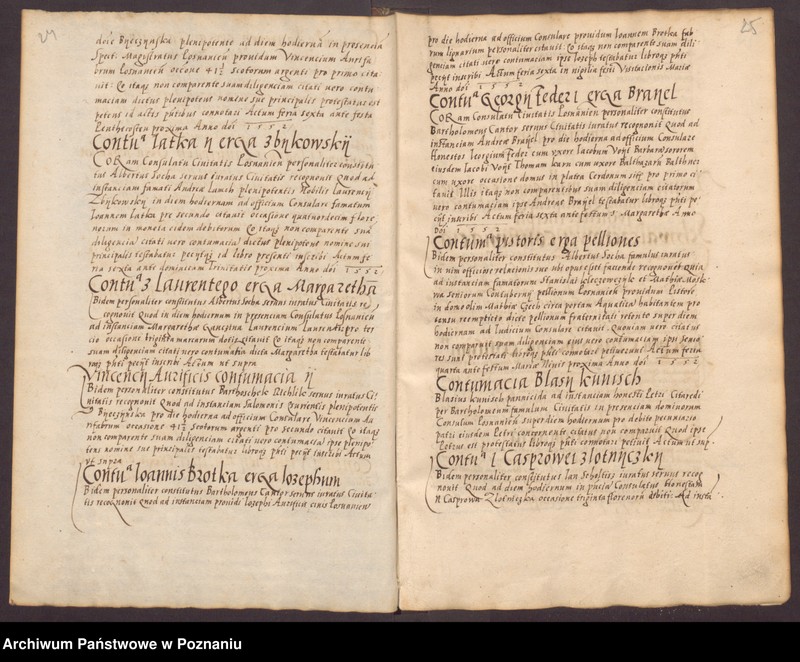 24
doce Bnyeczynska plenipotente ad diem hodiernã in presencia
Spect: Magistratus Losnanien providum Vincencium Aurifa
brum Losnanien occone 41½ scotorum argenti pro primo cita
uit: Co itaq3 non comparente suam diligenciam citati uero contu
maciam dictus plenipotens nomine sue principalis protestatus est
petens id actis pntibus connotari Actum feria sexta ante festa
Penthecosten proxima Anno doi 1552
Contuª Iatka ij erga Zbijkowskij
CORam Consulatu Ciuitatis Losnanien personaliter constitu
tus Albertus Socha seruus iuratus Ciuitatis recognouit Quod ad
instanciam famati Andree plenipotentis Nobilis Laurencij
Zbijkowskij in diem hodiernam ad officium Consulare famatum
Ioannem Iatka pro secundo citauit occasione quatuordecim flore
norum in moneta eidem debitorum Co itaq3 non comparente suã
diligencia citati uero contumacia dictus plenipotens nomine sui
principalis testabatur petijtq3 id libro presenti inscribi Actum fe
ria sexta ante dominicam Trinitatis proxima Anno doi 1552
Contuª 3 Laurentego erga Margaretha
Ibidem personaliter constitutus Albertus Socha seruus iuratus Ciuitatis re
cognouit Quod in diem hodiernum in presenciam Consulatus Losnanien
ad instanciam Margarethæ Laurencium pro ter
cio occasione triginta marcarum dotis citauit Co itaq3 non comparente
suam diligenciam citati uero contumatia dicta Margaretha testabatur lib
roq3 phti petijt inscribi Actum ut supra
Vincencij Aurificis contumacia ij
Ibidem personaliter constitutus Barthoschek Richlik seruus iuratus Ci
uitatis recognouit Quod ad instanciam Salomonis plenipotentis
Bnyeczynska pro die hodierna ad officium Consulare Vincencium Au
rifabrum occasione 41½ scotorum argenti pro secundo citauit Co itaq3
non comparente suam diligenciam citati uero contumacia ipse plenipo
tens nomine sue principalis testabatur libroq3 phti petijt inscribi Actum
ut supra
Contuª Ioannis Brotka erga Iozephum
Ibidem personaliter constitutus Bartholomeus Cantor seruus iuratus Ciuita
tis recognouit Quod ad instanciam prouidi Iosephi Aurifica ciuis Losnanien
25
pro die hodierna ad officium Consulare prouidum Ioannem Brotka fab
rum lignarium personaliter citauit: Co itaq3 non comparente suam dili
genciam citati uero contumaciam ipse Ioseph testabatur libroq3 phti
petijt inscribi Actum feria sexta in vigilia ferij Visitacionis Mariæ
Anno doi 1552
Contuª Georgij Feder 1 erga Branel
CORam Consulatu Ciuitatis Losnanien personaliter constitutus
Bartholomeus Cantor seruus Ciuitatis iuratus recognouit Quod ad
instanciam Andreæ Branel pro die hodierna ad officium Consulare
honestos Georgium Feder cum uxore Iacobum Voyt Barbaram sororem
eiusdem Iacobi Voyt Thomam cum uxore Balthazarn Balthner
cum uxore occasione domus in platea Cerdonum sitę pro primo ci
tauit Illis itaq3 non comparentibus suam diligenciam citatorum
uero contumaciam ipse Andreas Branel testabatur libroq3 phti pe
tijt inscribi Actum feria sexta ante festum S. Margarethæ Anno
doi 1552
Contumª pistoris erga pelliones
Ibidem personaliter constitutus Albertus Socha famulus iuratus
in uim officiose relacionis suæ ubi opus esset faciende recognouit Quia
ad instanciam famatorum Stanislai Kleczowcznik et Mathiæ Mosk
wa Seniorum Contubernij pellionum Losnanien prouidum
in domo olim Mathiæ Czech circa portam Aquaticã habitantem pro
censu reemptitio dictę pellionum fraternitati retento super diem
hodiernum ad Iudicium Consulare citauit. Quoniam uero citatus
non comparuit suam diligenciam eius uero contumaciam ipsi Senio
res sunt protestati libroq3 phti connotari petiuerunt Actum feria
quarta ante festum Mariæ Niuis proxima Anno doi 1552
Contumacia Blasij Kunisch
Blasius Kunisch pannicida ad instanciam honesti Petri Citaredi
per Bartholomeum famulum Ciuitatis in presenciam dominorum
Consulum Losnanien super diem hodiernum pro debito pecuniario
patri eiusdem Petri contrahente citatus non comparuit Quod ipse
Petrus est protestatus libroq3 phti connotari petiuit Actum ut sup.
Contuª 1 Casprowei Zlotnyczkij
Ibidem personaliter constitutus Ian Scholtis iuratus seruus recog
nouit Quod ad diem hodiernum in pncia Consulatus honestam
N Casprowa Zlotnyczka occasione triginta florenorũ debiti: Ad insta
Archiwum Państwowe w Poznaniu